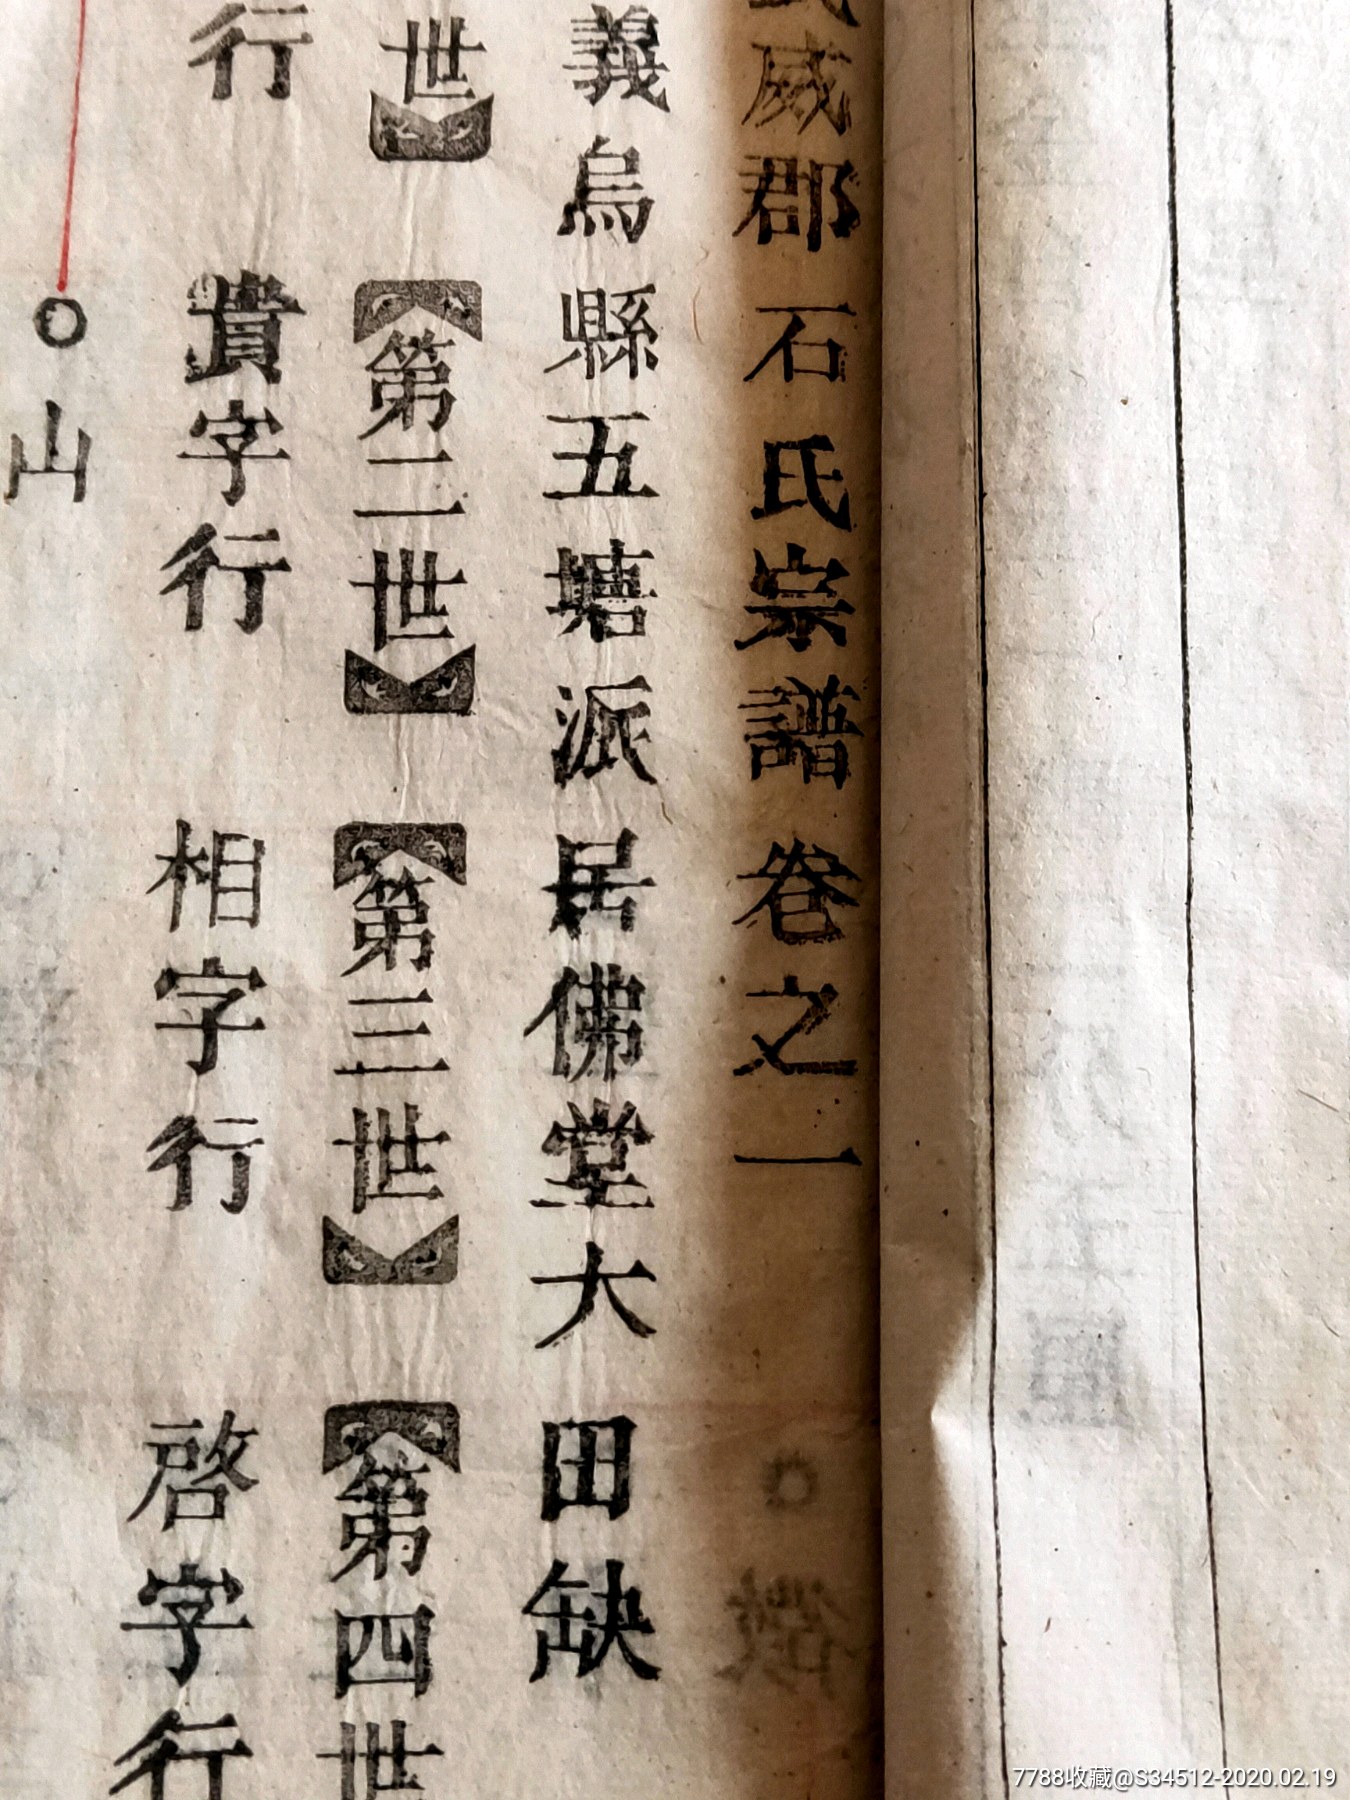 武威郡石氏宗譜卷之一
義烏縣五塘派居佛堂大田缺
世】【第二世】【第三世】【第四世
行 貴字行 相字行 啓字行
山
7788收藏@S34512-2020.02.19